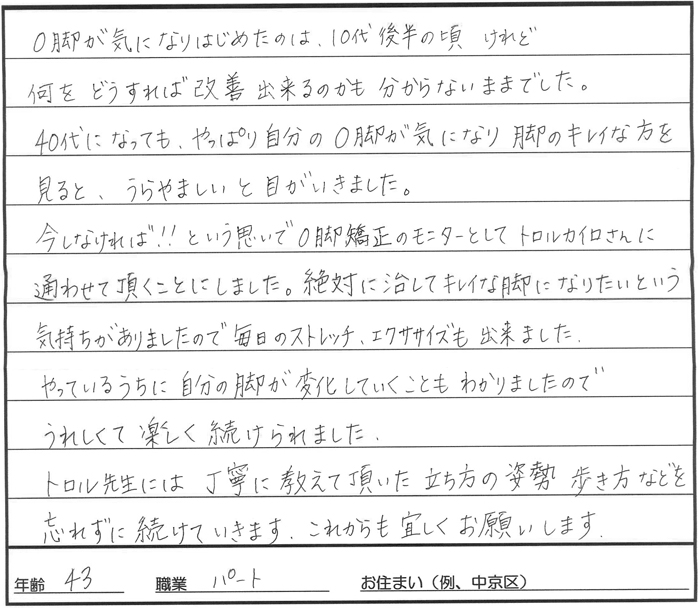 O脚が気になりはじめたのは、10代後半の頃 けれど
何を どうすれば 改善 出来るのかも 分からないままでした。
40代になっても、やっぱり自分の O脚が気になり 脚のキレイな方を
見ると、うらやましい と 目がいきました。
今しなければ!! という思いで O脚矯正のモニターとして トロルカイロさんに
通わせて頂くことにしました。絶対に治してキレイな脚になりたいという
気持ちがありましたので 毎日のストレッチ、エクササイズも 出来ました.
やっているうちに 自分の脚が 変化していくことも わかりましたので
うれしくて 楽しく 続けられました.
トロル先生には 丁寧に教えて頂いた 立ち方の姿勢 歩き方などを
忘れずに 続けていきます. これからも 宜しくお願いします.
年齢 43 職業 パート お住まい(例、中京区)